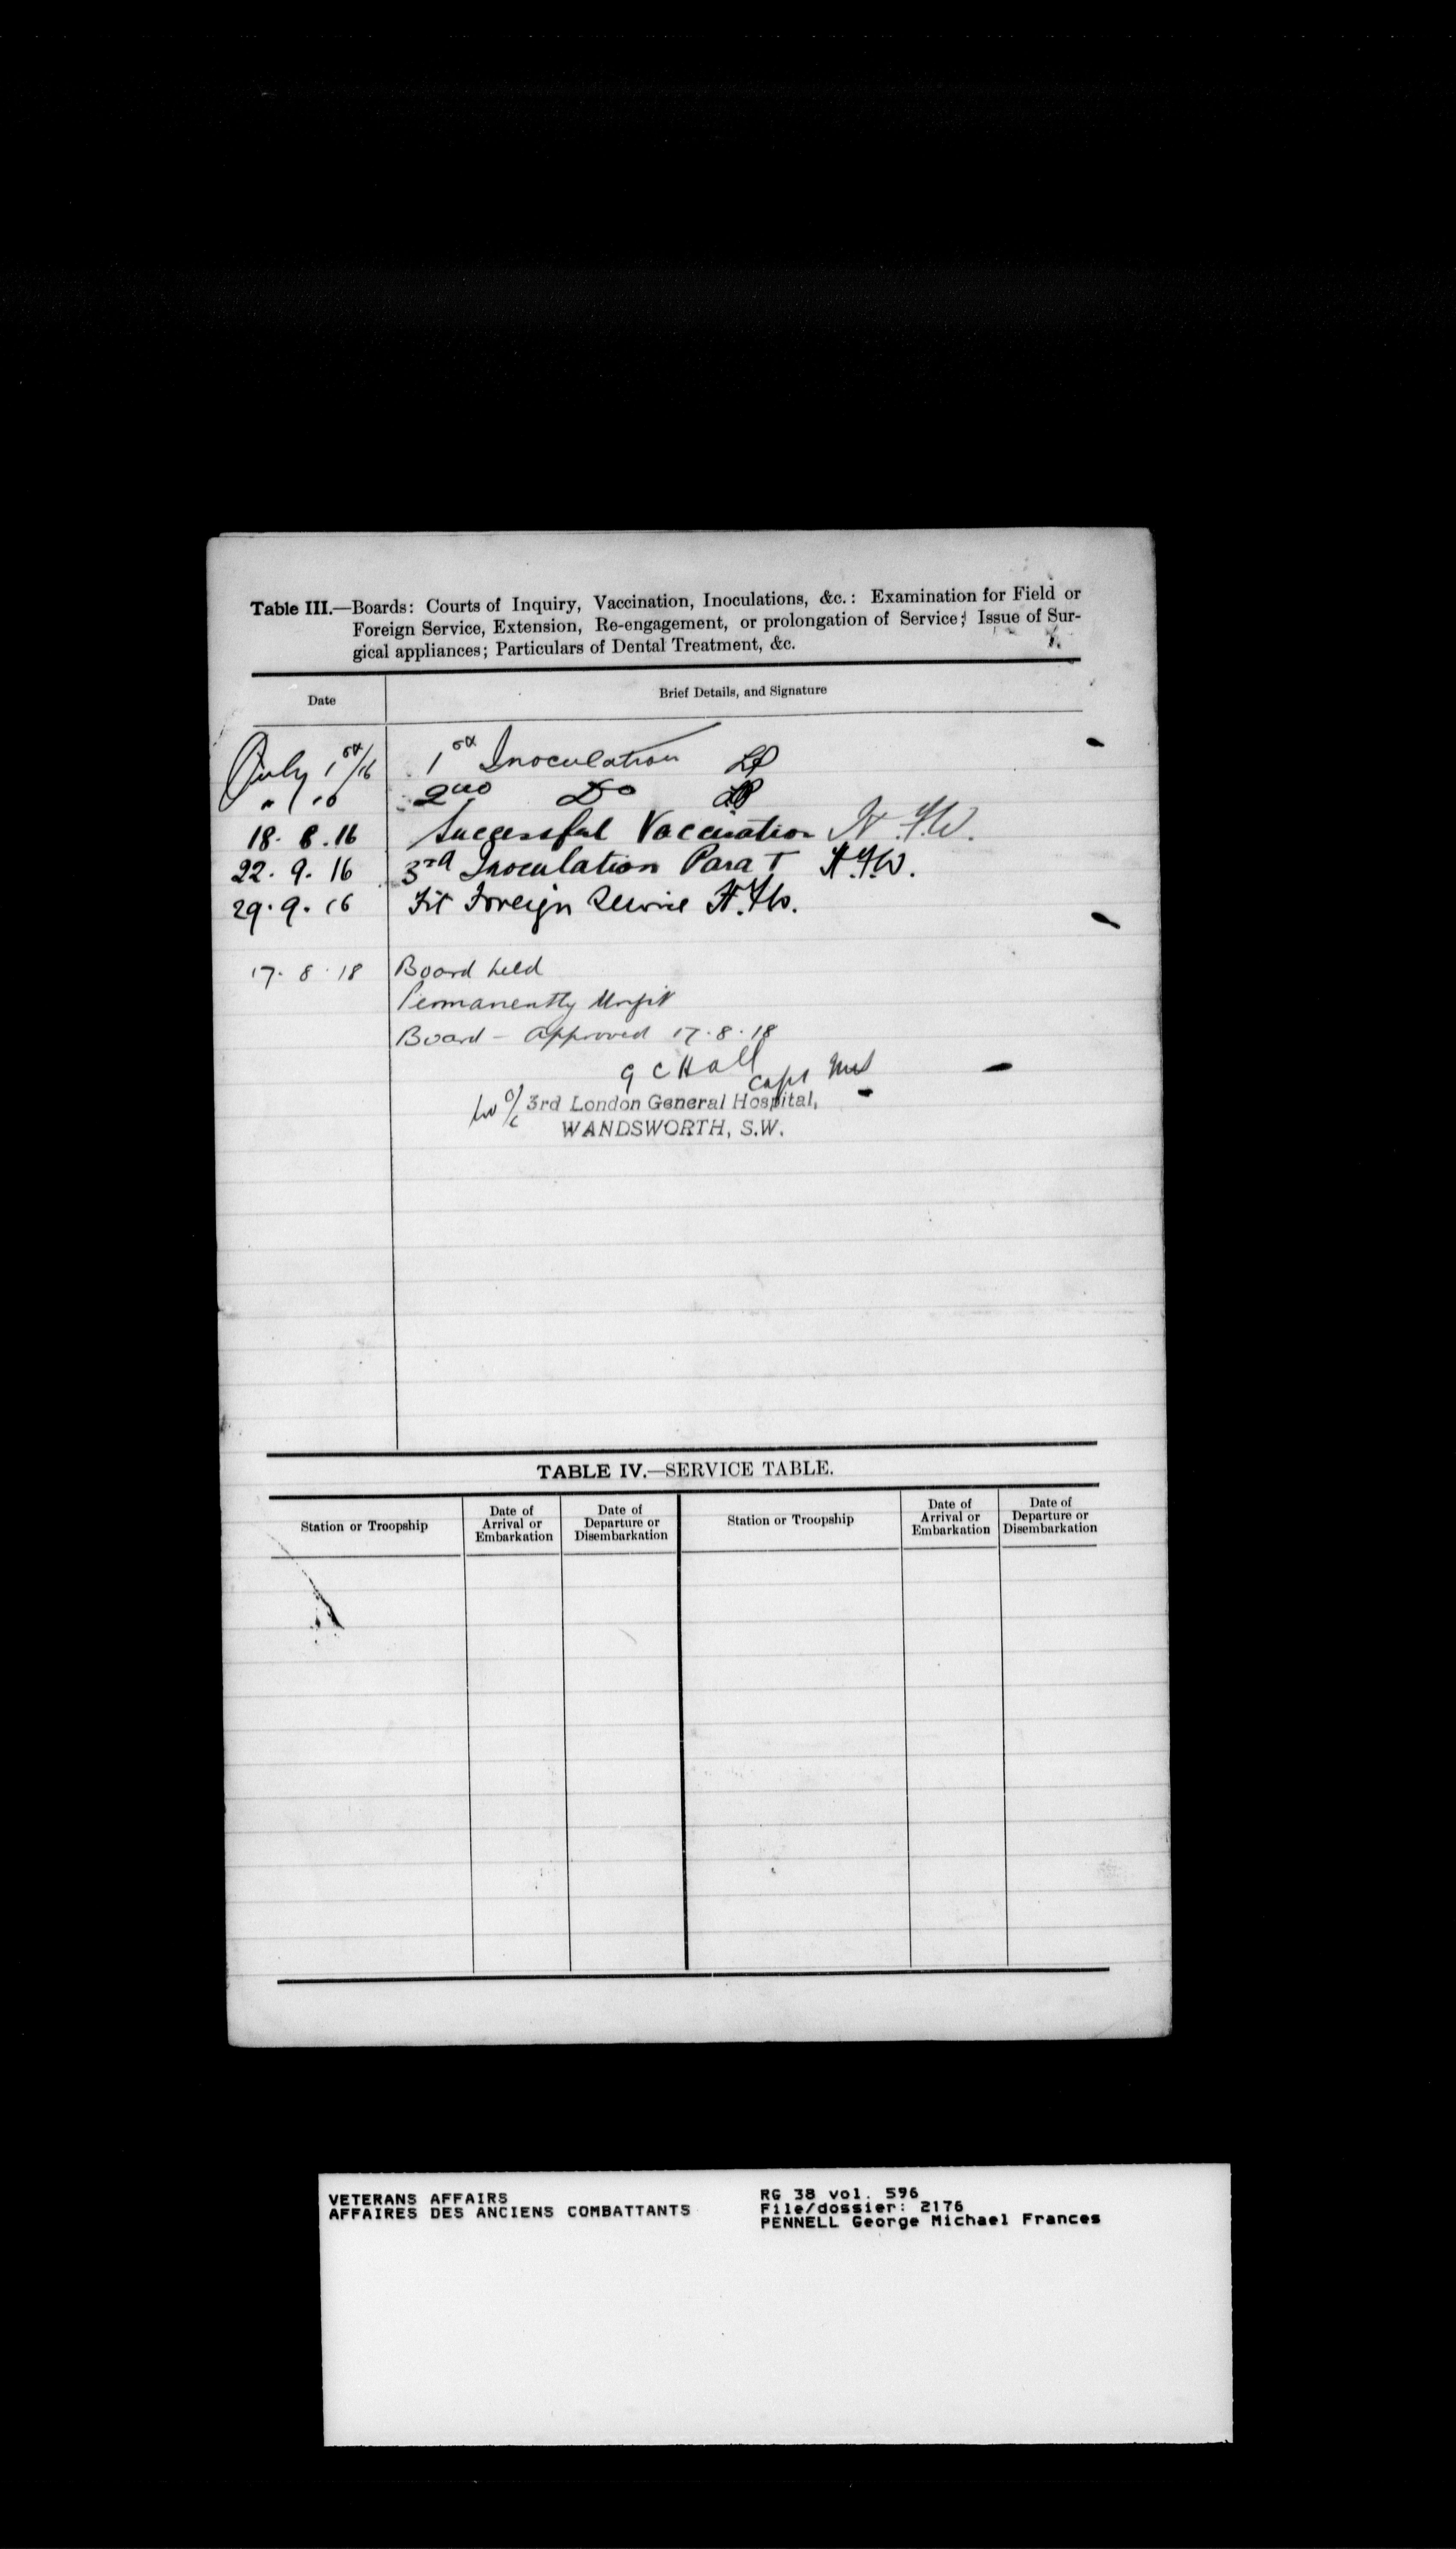 Table III.—Boards: Courts of Inquiry, Vaccination, Inoculations, &c.: Examination for Field or
Foreign Service, Extension, Re-engagement, or prolongation of Service; Issue of Sur-
gical appliances; Particulars of Dental Treatment, &c.
Date Brief Details, and Signature
July 1st/16 1st Inoculation
" 2nd Do
18. 8. 16 Successful Vaccination H.F.W.
22. 9. 16 3rd Inoculation Para T H.F.W.
29. 9. 16 Fit Foreign Service H.F.W.
17. 8. 18 Board held
Permanently Unfit
Board - approved 17.8.18
G C Hall
Capt
o/c 3rd London General Hospital,
WANDSWORTH, S.W.
TABLE IV.—SERVICE TABLE.
Station or Troopship Date of Arrival or Embarkation Date of Departure or Disembarkation Station or Troopship Date of Arrival or Embarkation Date of Departure or Disembarkation
VETERANS AFFAIRS
AFFAIRES DES ANCIENS COMBATTANTS
RG 38 vol. 596
File/dossier: 2176
PENNELL George Michael Frances